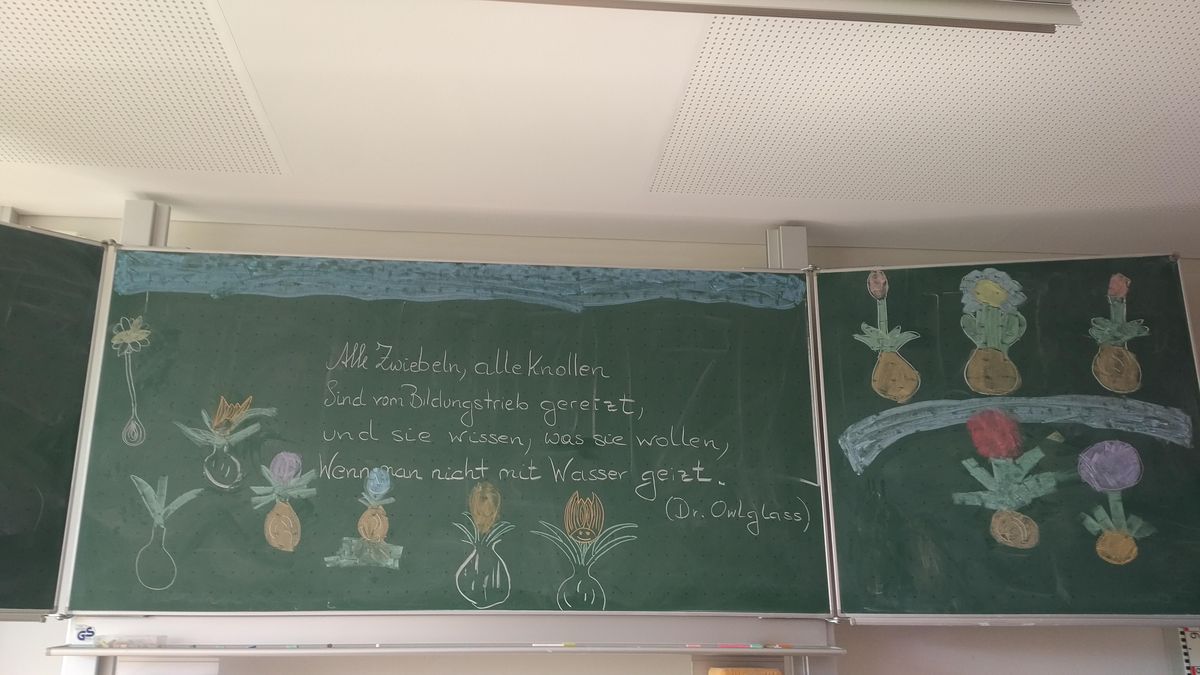 Alle Zwiebeln, alle Knollen
Sind vom Bildungstrieb gereizt,
und sie wissen, was sie wollen,
Wenn man nicht mit Wasser geizt.
(Dr. Owlglass)
GS